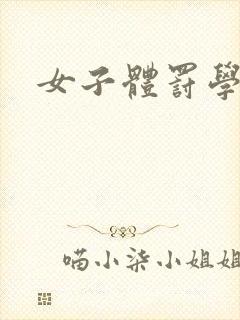 女子體罰學
喵小柒小姐姐